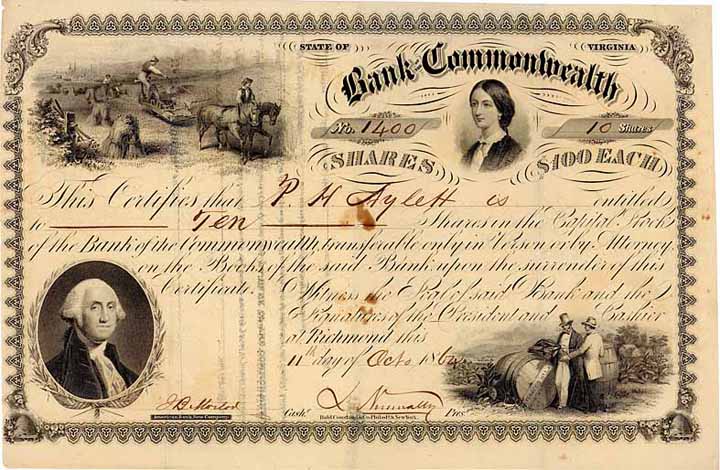 STATE OF VIRGINIA
Bank of the Commonwealth
No. 1400 10 Shares
SHARES $100 EACH
This Certifies that P. H. Aylett is entitled
to Ten Shares in the Capital Stock
of the Bank of the Commonwealth, transferable only in Person or by Attorney
on the Books of the said Bank upon the surrender of this
Certificate. Witness the Seal of said Bank and the
Signatures of the President and Cashier
at Richmond this
11th day of Octr. 186
American Bank Note Company. Cash. Pres.